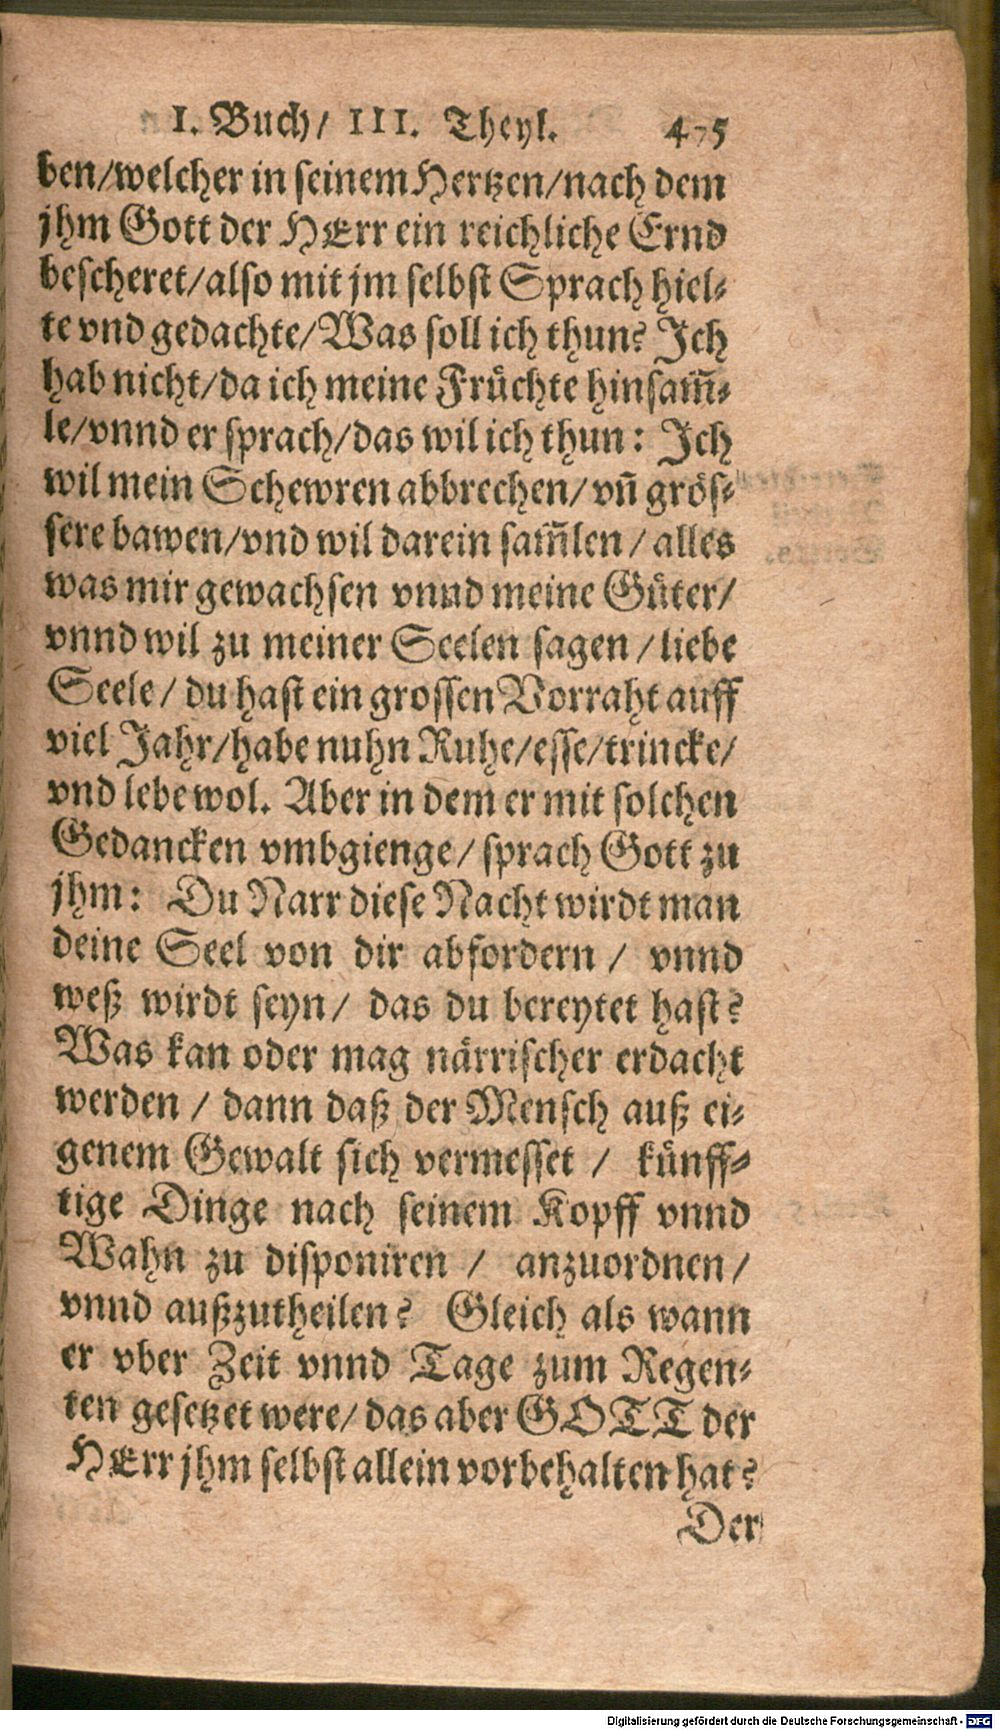 I. Buch/ III. Theyl. 475
ben/welcher in seinem Hertzen/nach dem
jhm Gott der HErr ein reichliche Ernd
bescheret/also mit jm selbst Sprach hiel-
te vnd gedachte/Was soll ich thun? Ich
hab nicht/da ich meine Früchte hinsam̃-
le/vnnd er sprach/das wil ich thun: Ich
wil mein Schewren abbrechen/vñ grös-
sere bawen/vnd wil darein sam̃len/alles
was mir gewachsen vnnd meine Güter/
vnnd wil zu meiner Seelen sagen/liebe
Seele/du hast ein grossen Vorraht auff
viel Jahr/habe nuhn Ruhe/esse/trincke/
vnd lebe wol. Aber in dem er mit solchen
Gedancken vmbgienge/sprach Gott zu
jhm: Du Narr diese Nacht wirdt man
deine Seel von dir abfordern/ vnnd
weß wirdt seyn/ das du bereytet hast?
Was kan oder mag närrischer erdacht
werden/ dann daß der Mensch auß ei-
genem Gewalt sich vermesset/ künff-
tige Dinge nach seinem Kopff vnnd
Wahn zu disponiren/ anzuordnen/
vnnd außzutheilen? Gleich als wann
er vber Zeit vnnd Tage zum Regen-
ten gesetzet were/das aber GOTT der
HErr jhm selbst allein vorbehalten hat?
Der
Digitalisierung gefördert durch die Deutsche Forschungsgemeinschaft - DFG